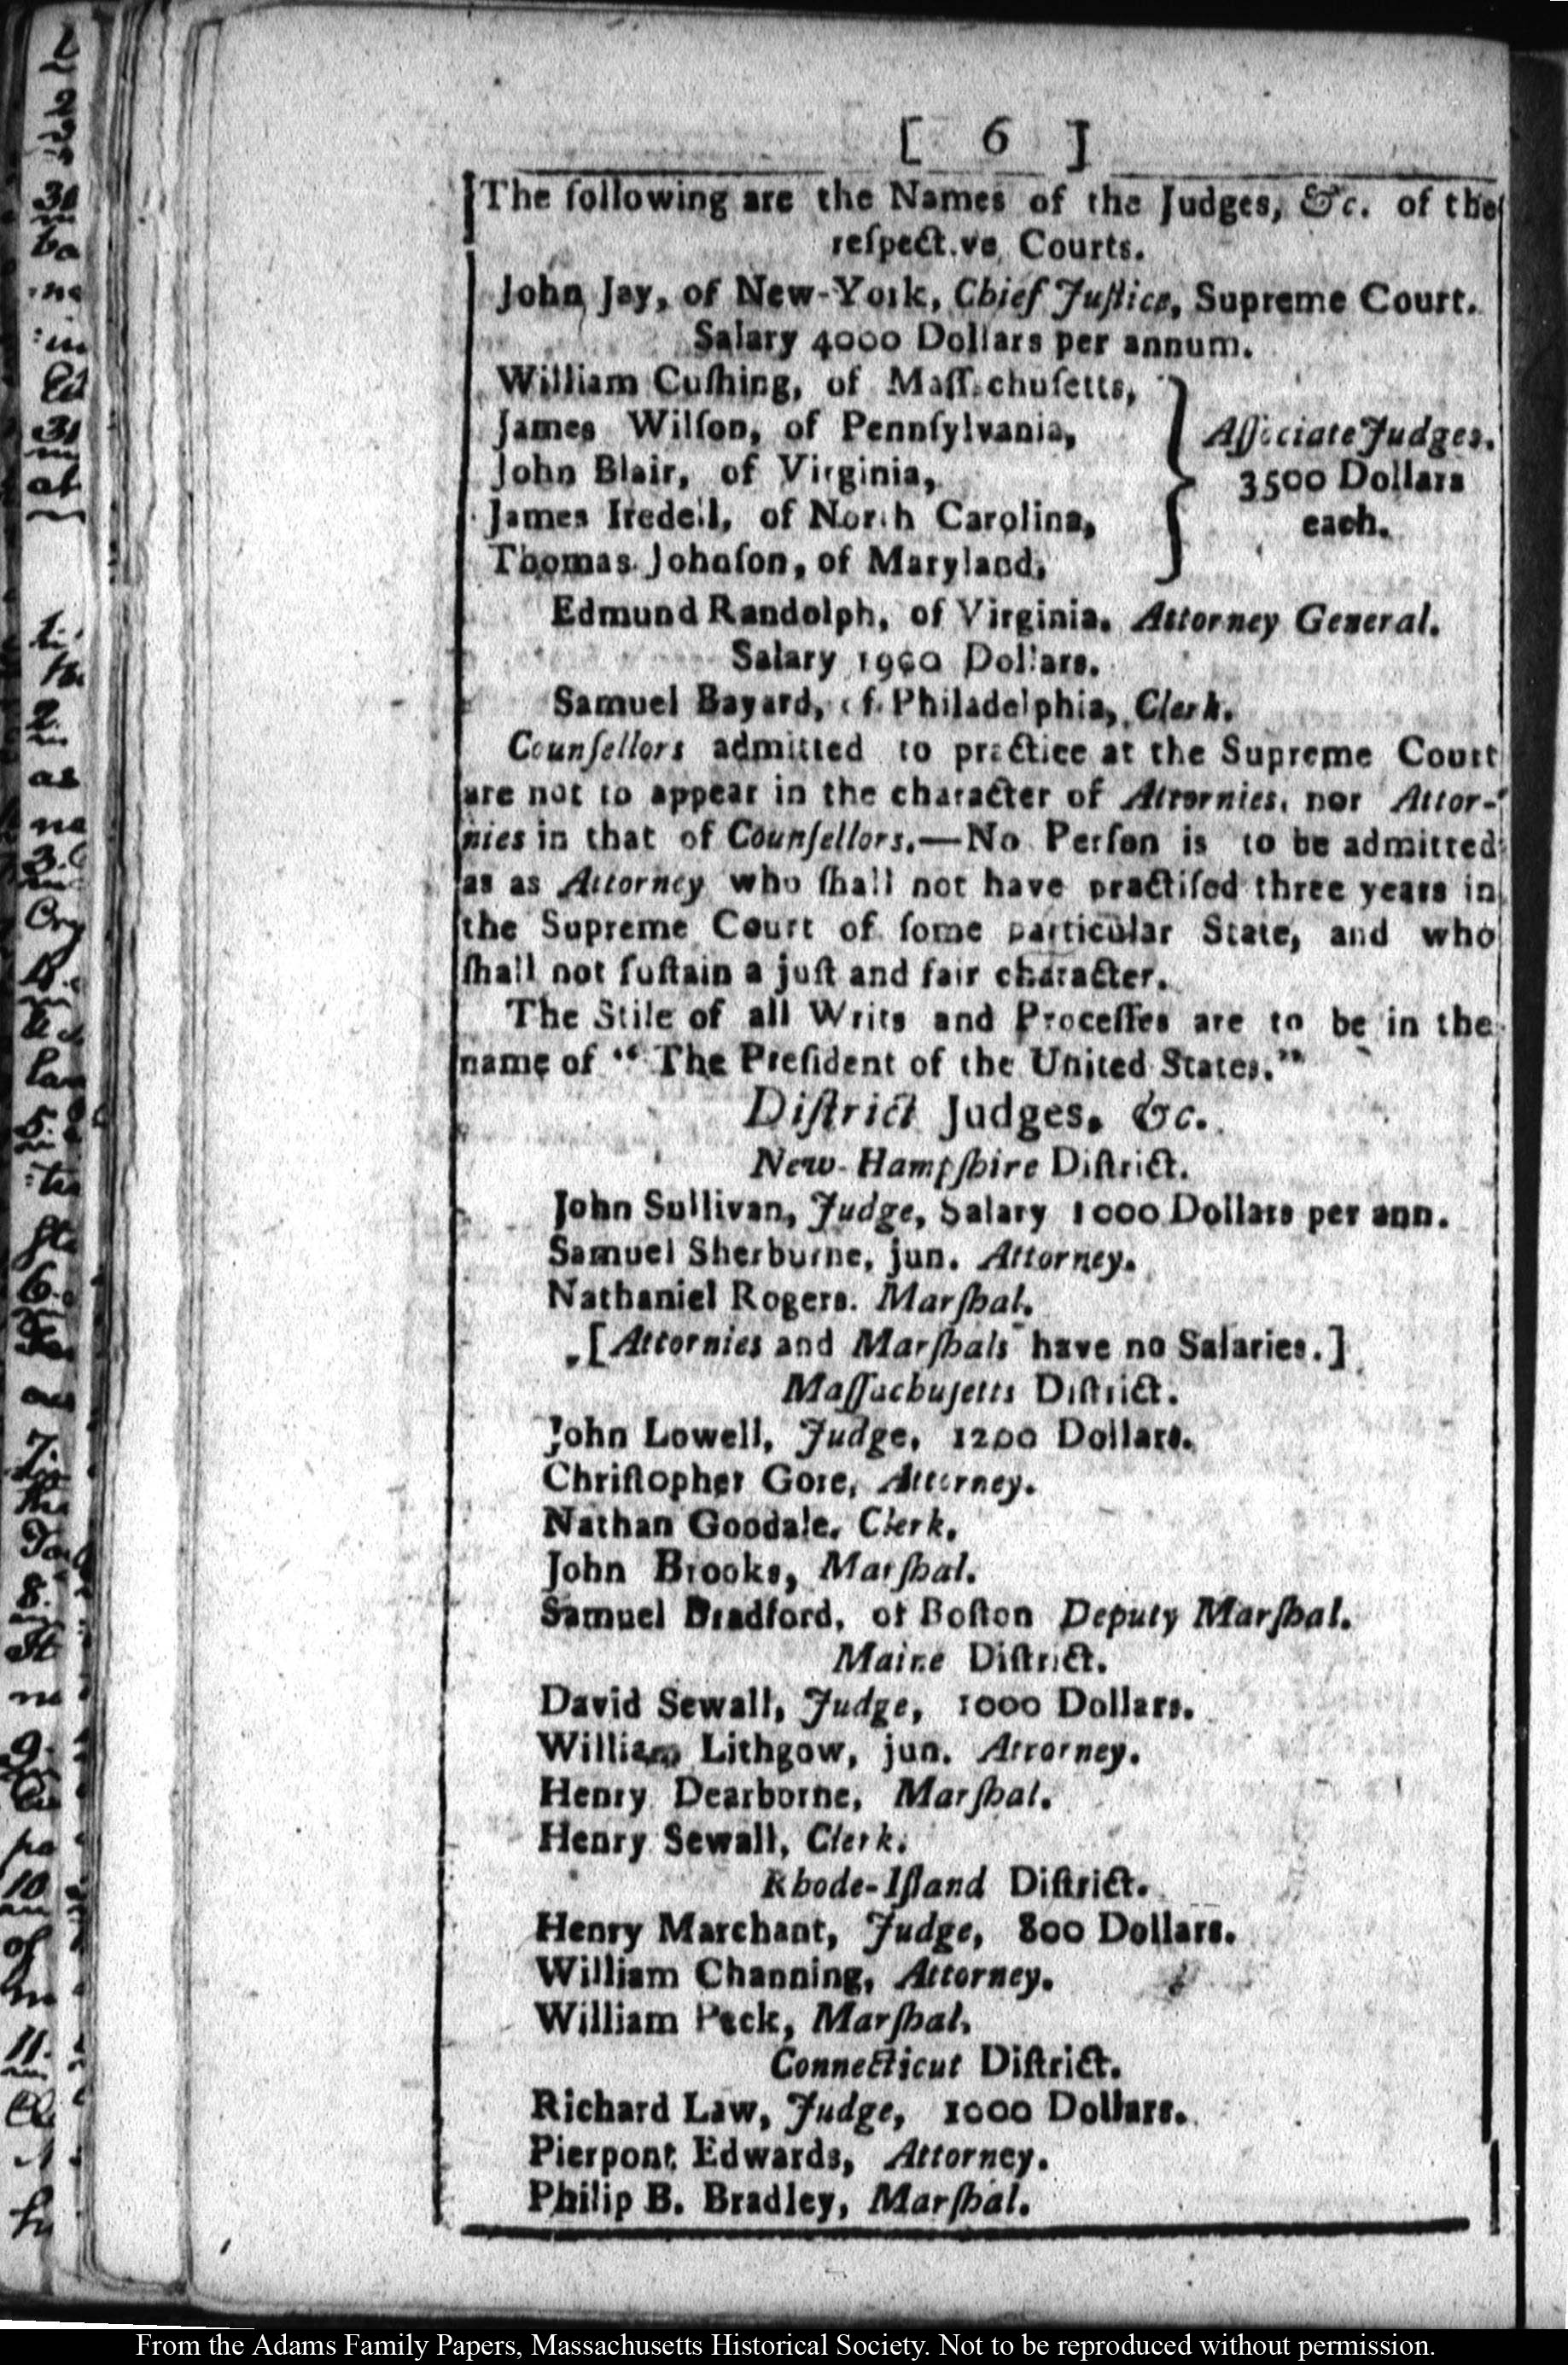 [ 6 ]
The following are the Names of the Judges, &c. of the
reſpect.ve Courts.
John Jay, of New-York, Chief Juſtice, Supreme Court.
Salary 4000 Dollars per annum.
William Cuſhing, of Maſſ.chuſetts,
James Wilſon, of Pennſylvania,
John Blair, of Virginia,
James Iredell, of North Carolina,
Thomas Johnſon, of Maryland,
Aſſociate Judges.
3500 Dollars
each.
Edmund Randolph, of Virginia. Attorney General.
Salary 1900 Dollars.
Samuel Bayard, of Philadelphia, Clerk.
Counſellors admitted to practice at the Supreme Court
are not to appear in the character of Attornies, nor Attor-
nies in that of Counſellors.—No Perſon is to be admitted
as as Attorney who ſhall not have practiſed three years in
the Supreme Court of ſome particular State, and who
ſhall not ſuſtain a juſt and fair character.
The Stile of all Writs and Proceſſes are to be in the
name of "The Preſident of the United States."
Diſtrict Judges, &c.
New-Hampſhire Diſtrict.
John Sullivan, Judge, Salary 1000 Dollars per ann.
Samuel Sherburne, jun. Attorney.
Nathaniel Rogers. Marſhal.
[Attornies and Marſhals have no Salaries.]
Maſſachuſetts Diſtrict.
John Lowell, Judge, 1200 Dollars.
Chriſtopher Gore, Attorney.
Nathan Goodale, Clerk.
John Brooks, Marſhal.
Samuel Bradford, of Boſton Deputy Marſhal.
Maine Diſtrict.
David Sewall, Judge, 1000 Dollars.
William Lithgow, jun. Attorney.
Henry Dearborne, Marſhal.
Henry Sewall, Clerk.
Rhode-Iſland Diſtrict.
Henry Marchant, Judge, 800 Dollars.
William Channing, Attorney.
William Peck, Marſhal.
Connecticut Diſtrict.
Richard Law, Judge, 1000 Dollars.
Pierpont Edwards, Attorney.
Philip B. Bradley, Marſhal.
From the Adams Family Papers, Massachusetts Historical Society. Not to be reproduced without permission.